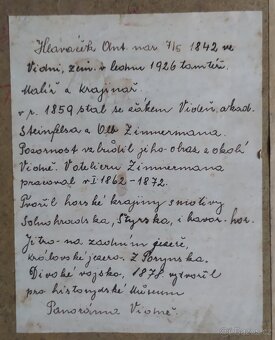 Hlavaček Ant. nar. 7/5 1842 ve
Vídni, zem. v lednu 1926 tamtéž.
Malíř a krajinář.
v r. 1859 stal se žákem Vídeň. akad.
Steinfelsa a Alb Zimmermana.
Pozornost vzbudil jeho obraz z okolí
Vídně. V atelieru Zimmermana
pracoval v l 1862-1872.
Tvořil horské krajiny s motivy
Solnohradska, Štyrska, i bavor. hor.
Jitro na zadním jezeře,
Královské jezero. Z Porýnska.
Divoké vojsko, 1878 vytvořil
pro historydské Museum
Panoráma Vídně.